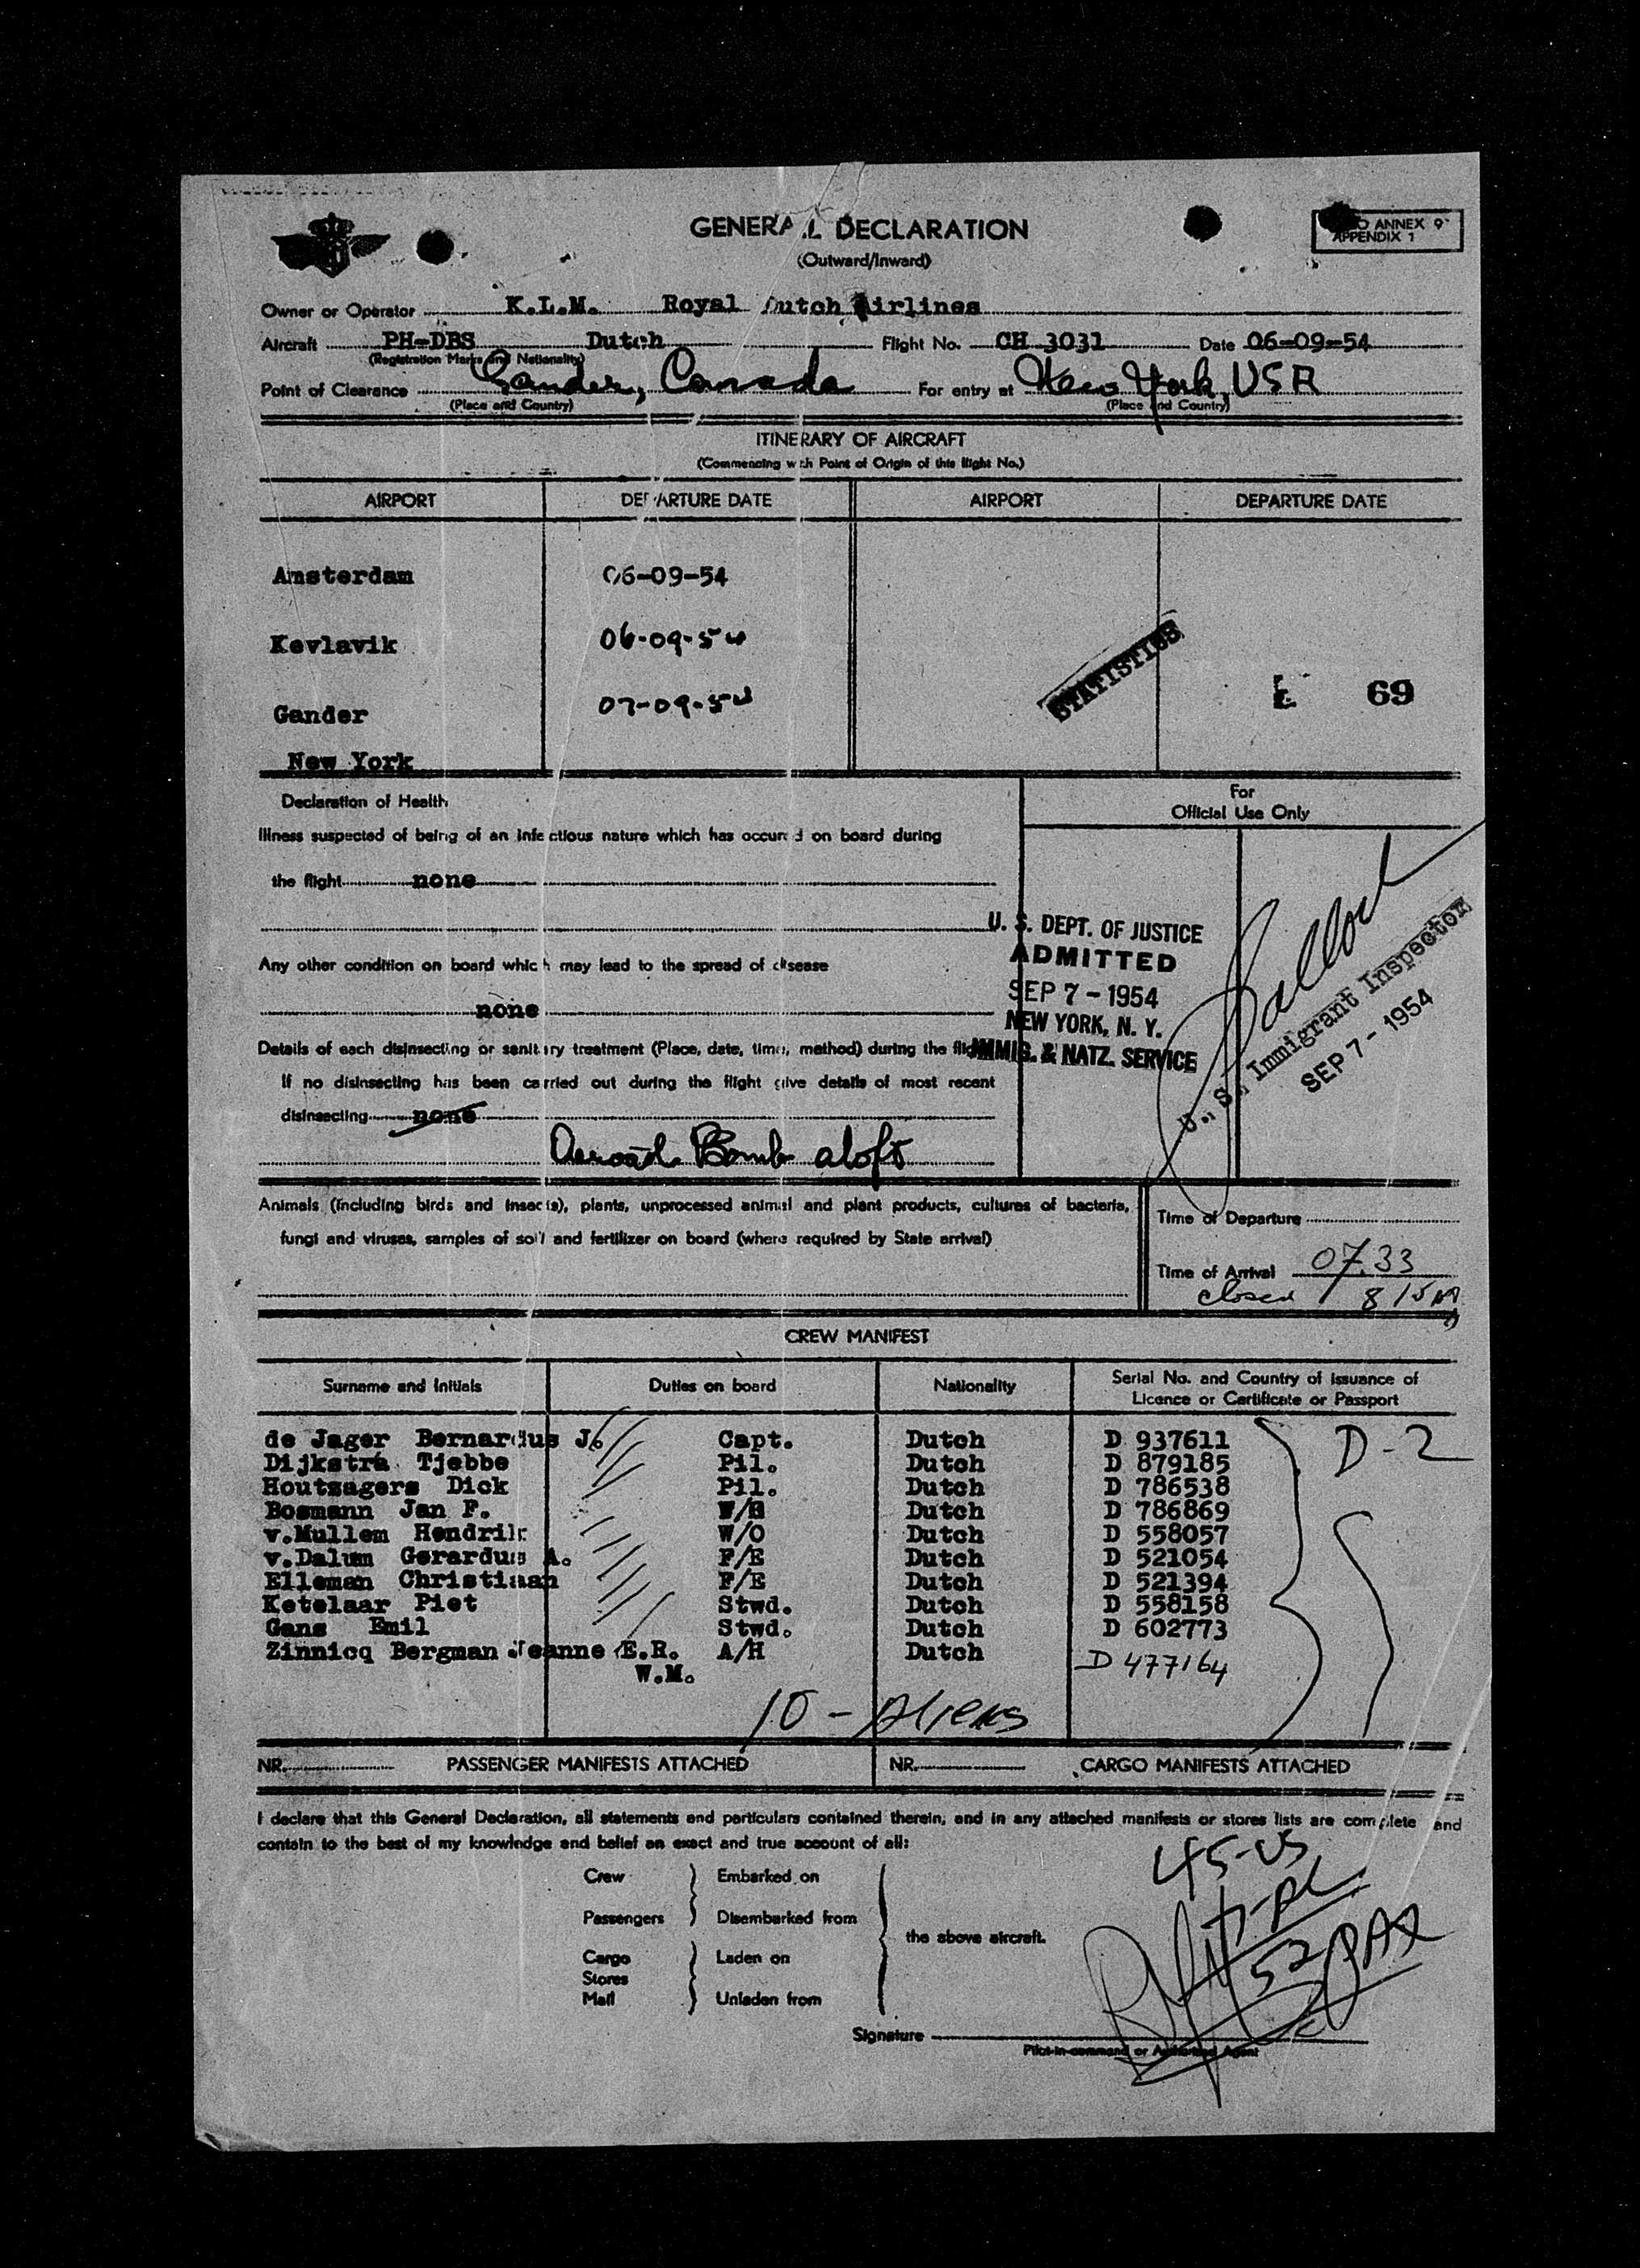 GENERAL DECLARATION
(Outward/Inward)
ANNEX 9
APPENDIX 1
Owner or Operator K.L.M. Royal Dutch Airlines
Aircraft PH-DBS Dutch Flight No. CH 3031 Date 06-09-54
(Registration Marks and Nationality)
Point of Clearance Gander, Canada For entry at New York, USA
(Place and Country) (Place and Country)
ITINERARY OF AIRCRAFT
(Commencing with Point of Origin of this flight No.)
AIRPORT DEPARTURE DATE AIRPORT DEPARTURE DATE
Amsterdam 06-09-54
Kevlavik 06-09-54
STATISTICS
Gander 07-09-54
69
New York
Declaration of Health
For
Official Use Only
Illness suspected of being of an infectious nature which has occured on board during
the flight none
U. S. DEPT. OF JUSTICE
ADMITTED
SEP 7 - 1954
NEW YORK, N. Y.
IMMIG. & NATZ. SERVICE
U. S. Immigrant Inspector
SEP 7 - 1954
Any other condition on board which may lead to the spread of disease
none
Details of each disinsecting or sanitary treatment (Place, date, time, method) during the flight
If no disinsecting has been carried out during the flight give details of most recent
disinsecting none
Bomb aloft
Animals (including birds and insects), plants, unprocessed animal and plant products, cultures of bacteria,
fungi and viruses, samples of soil and fertilizer on board (where required by State arrival)
Time of Departure
Time of Arrival 07.33
closed 815
CREW MANIFEST
Surname and Initials Duties on board Nationality Serial No. and Country of issuance of
Licence or Certificate or Passport
de Jager Bernardus J. Capt. Dutch D 937611
D-2
Dijkstra Tjebbe Pil. Dutch D 879185
Houtzagers Dick Pil. Dutch D 786538
Bosmann Jan F. Dutch D 786869
v.Mullem Hendrik W/O Dutch D 558057
v.Dalum Gerardus A. F/E Dutch D 521054
Elleman Christiaan F/E Dutch D 521394
Ketelaar Piet Stwd. Dutch D 558158
Gans Emil Stwd. Dutch D 602773
Zinnicq Bergman Jeanne E.R. A/H Dutch D 477164
W.M.
10 - Aliens
NR. PASSENGER MANIFESTS ATTACHED NR. CARGO MANIFESTS ATTACHED
I declare that this General Declaration, all statements and particulars contained therein, and in any attached manifests or stores lists are complete and
contain to the best of my knowledge and belief an exact and true account of all:
45-US
Crew Embarked on
Passengers Disembarked from
the above aircraft.
52 PAX
Cargo Laden on
Stores
Mail Unladen from
Signature
Pilot-in-command or Authorized Agent